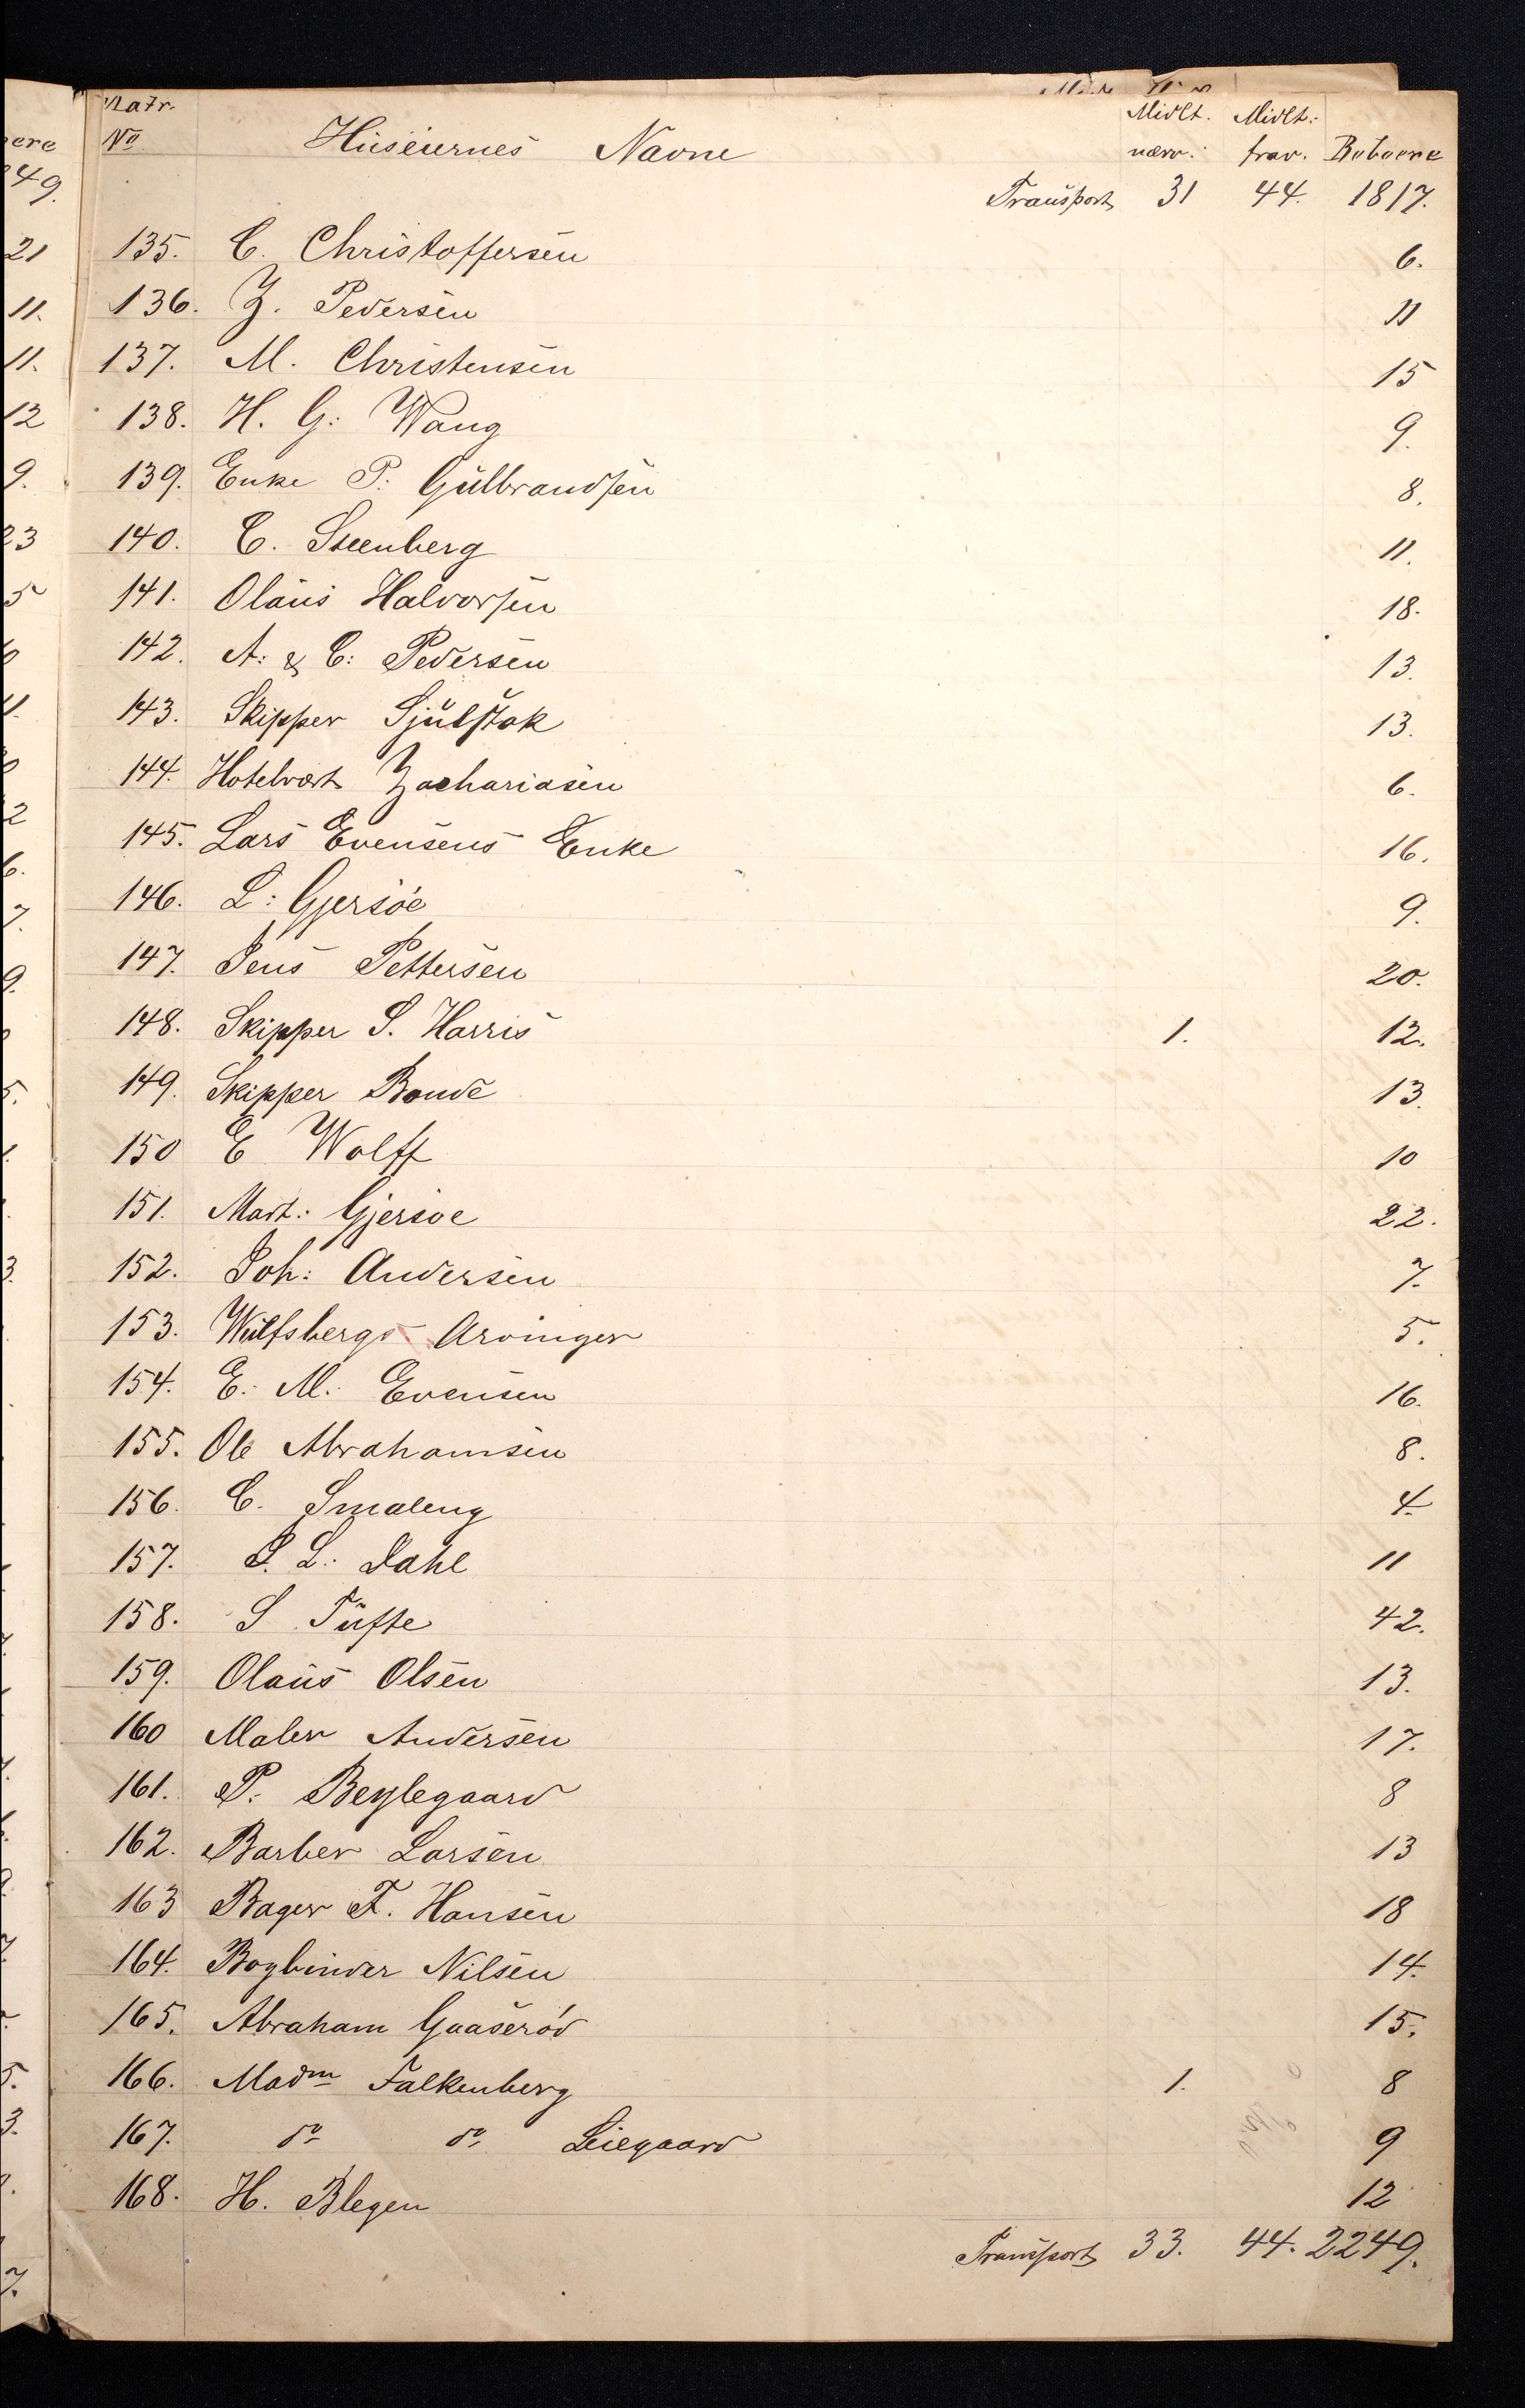 Matr. No Huseiernes Navne Midlt. nærv. Midlt: frav. Beboere
Transport 31 44. 1817.
135. C. Christoffersen 6.
136. Z. Pedersen 11
137. M. Christensen 15
138. H. G: Wang 9.
139. Enke P: Gulbrandsen 8.
140. C. Steenberg 11.
141. Olaus Halvorsen 18.
142. A: & C: Pedersen 13.
143. Skipper Sjulstok 13.
144. Hotelvært Zachariasen 6.
145. Lars Evensens Enke 16.
146. L: Gjersøe 9.
147. Jens Pettersen 20.
148. Skipper S. Harris 1. 12.
149. Skipper Bonde 13.
150 E Wolff 10
151. Mart: Gjersoe 22.
152. Joh: Andersen 7.
153. Wulfsbergs Arvinger 5.
154. E: M: Evensen 16.
155. Ole Abrahamsen 8.
156. C. Smaleng 4.
157. L: Dahl 11
158. S Tufte 42.
159. Olaus Olsen 13.
160 Maler Andersen 17.
161. P. Beylegaard 8
162. Barber Larsen 13
163 Bager F. Hansen 18
164. Bogbinder Nilsen 14.
165. Abraham Gaaserød 15.
166. Madm Falkenberg 1. 8
167. do do Leiegaard 9
168. H. Blegen 12
Transport 33. 44. 2249.